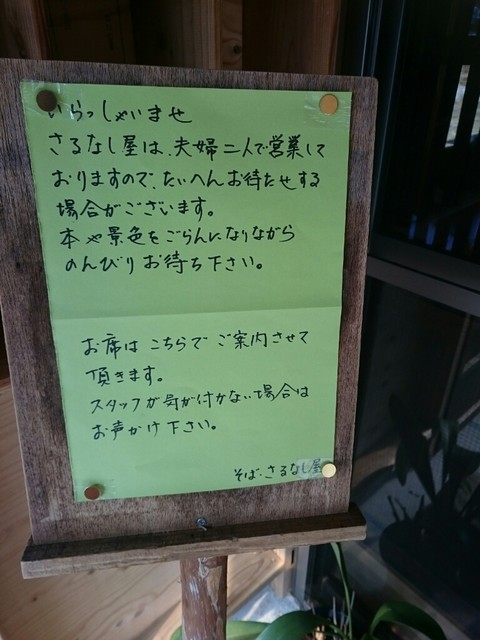 いらっしゃいませ
さるなし屋は、夫婦二人で営業して
おりますので、たいへんお待たせする
場合がございます。
本や景色をごらんになりながら
のんびりお待ち下さい。
お席はこちらでご案内させて
頂きます。
スタッフが気が付かない場合は
お声かけ下さい。
そば・さるなし屋